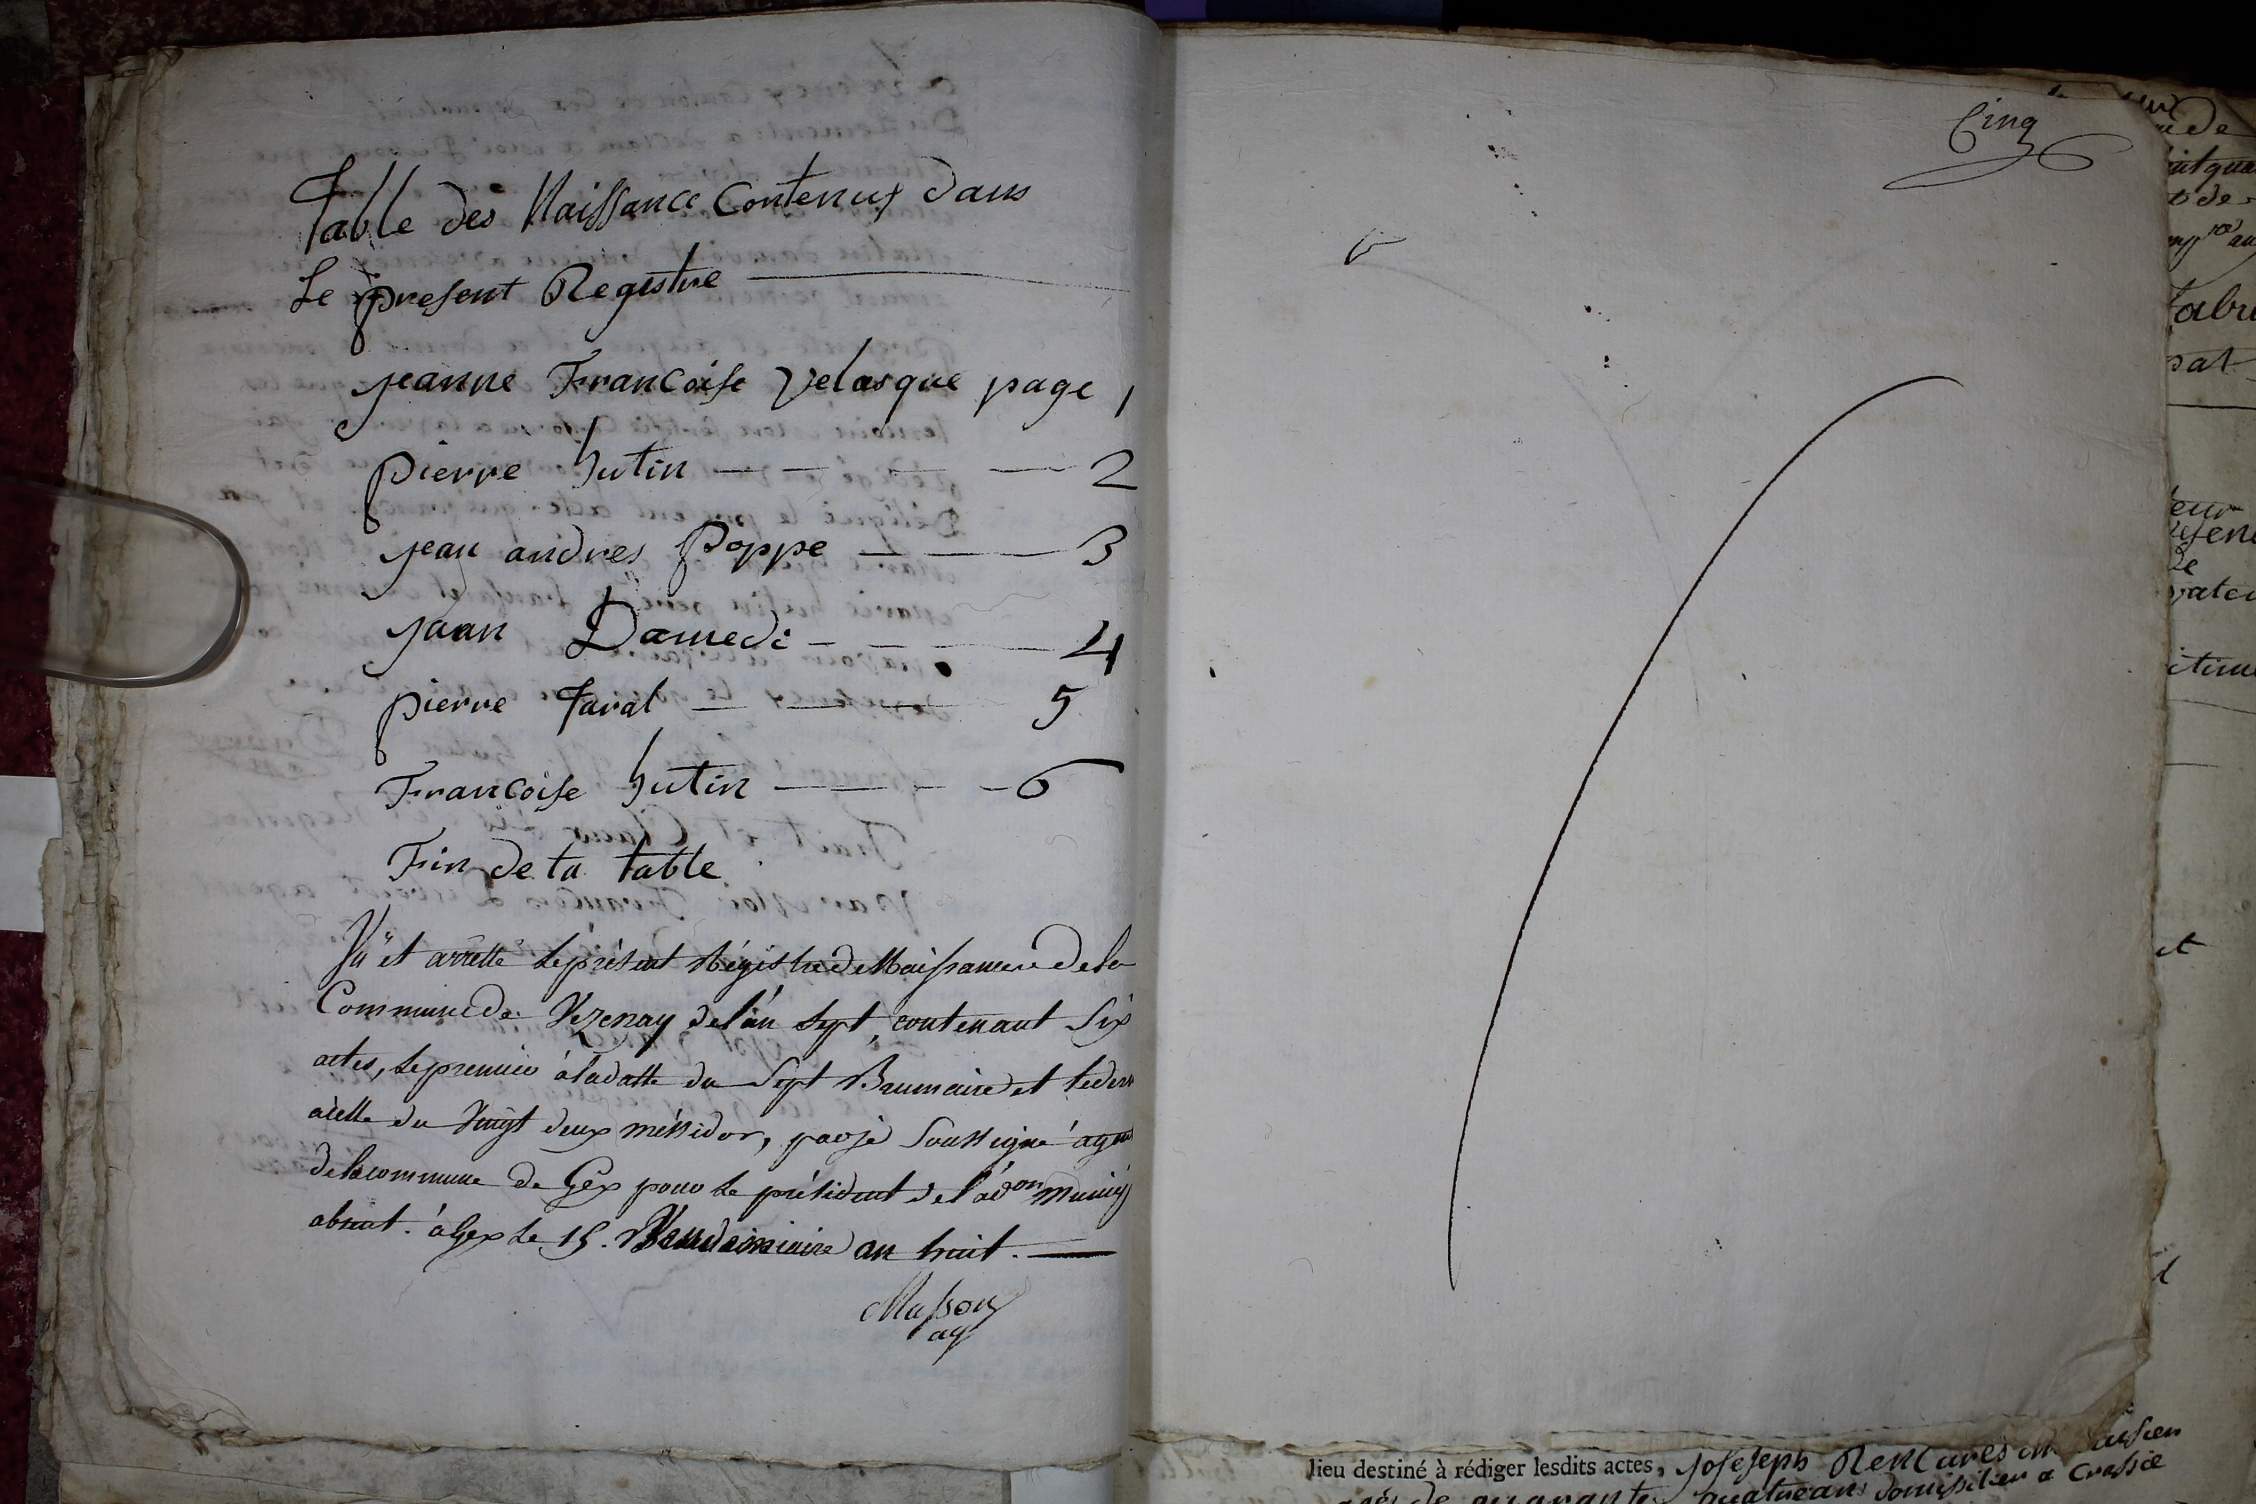 Table des Naissance Contenus dans
Le present Registre
jeanne Francoise Velasque page 1
pierre hutin 2
jean andres poppe 3
jean Damedi 4
pierre Faral 5
Francoise hutin 6
Fin de la table
Vu et arretté le présent Régistre de Naissances de la
Commune de Vezenay de l'an sept, contenant six
actes, le premier à la datte du sept Brumaire et le dern
à celle du vingt deux méssidor, par je soussigné agent
de la commune de Gex pour le président de l'adon municip
absent. à Gex le 15. Vendemiaire an huit.
Masson
ag
Cinq
lieu destiné à rédiger lesdits actes, joseseph
de quarante quatre ans domissilier a Crassie